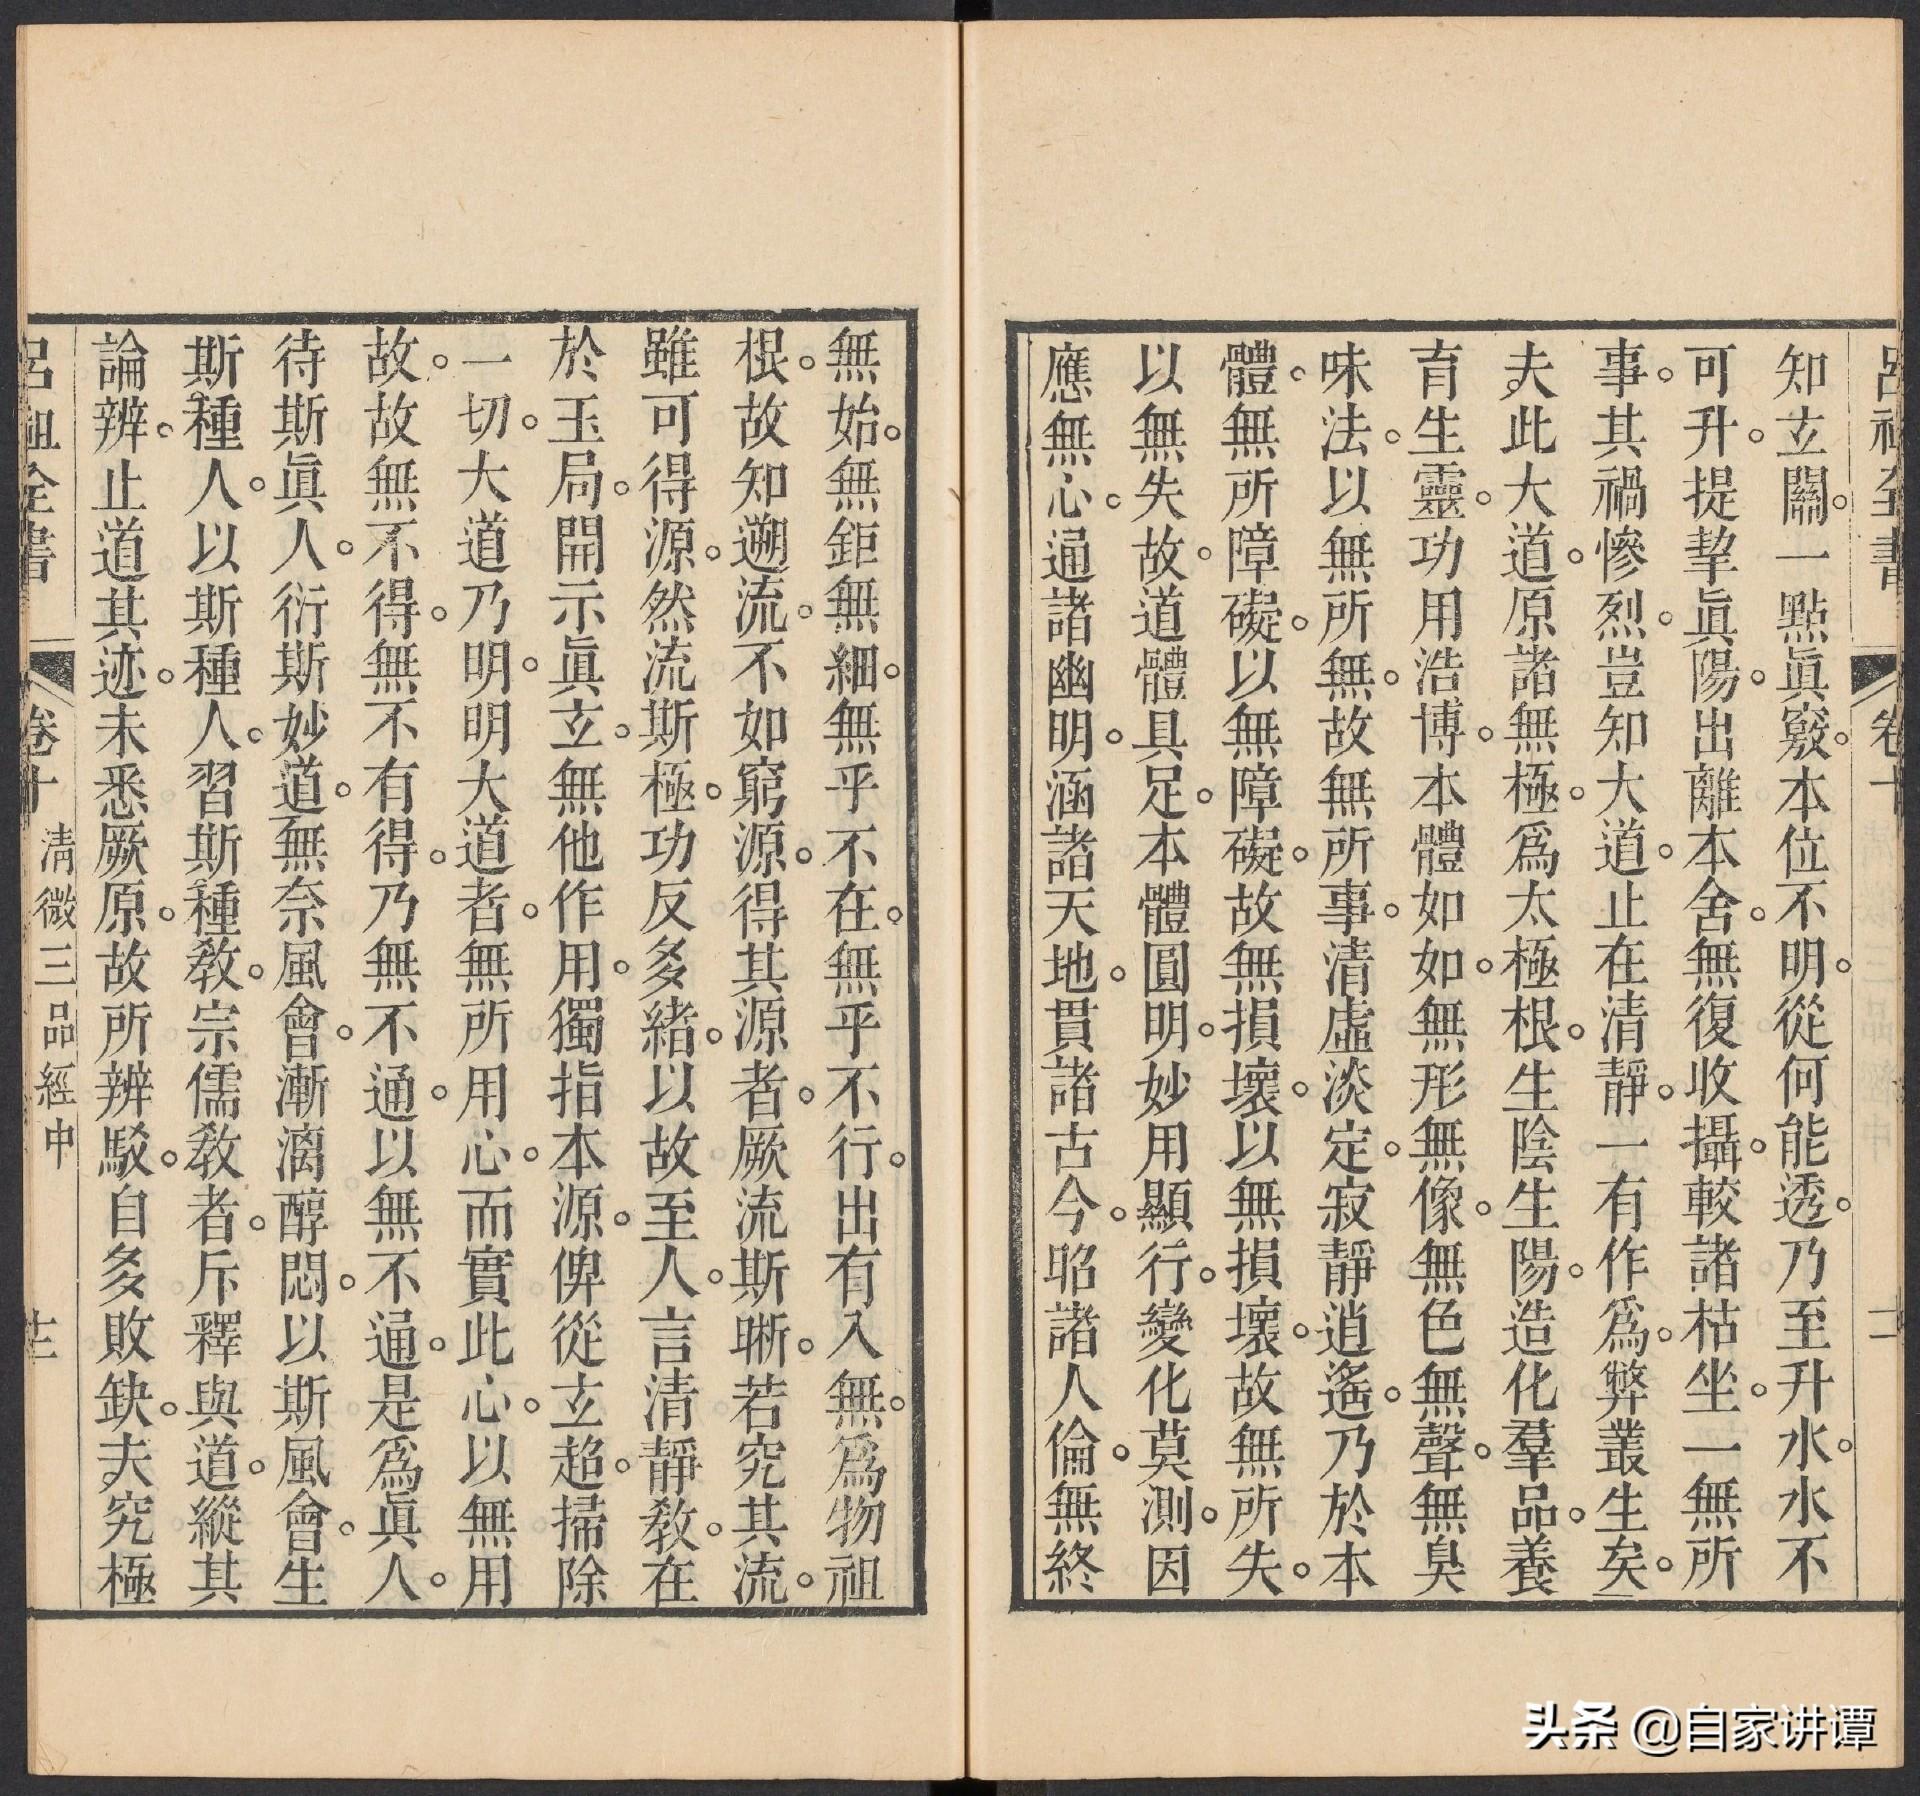 呂祖全書 卷十
知玄關。一點眞竅。本位不明。從何能透。乃至升水。水不
可升。提挈眞陽。出離本舍。無復收攝。較諸枯坐。一無所
事。其禍慘烈。豈知大道。止在清靜。一有作爲。弊叢生矣。
夫此大道。原諸無極。爲太極根。生陰生陽。造化羣品。養
育生靈。功用浩博。本體如如。無形無像。無色無聲。無臭
味法。以無所無。故無所事。清虛淡定。寂靜逍遙。乃於本
體。無所障礙。以無障礙。故無損壞。以無損壞。故無所失。
以無失故。道體具足。本體圓明。妙用顯行。變化莫測。因
應無心。通諸幽明。涵諸天地。貫諸古今。昭諸人倫。無終
無始。無鉅無細。無乎不在。無乎不行。出有入無。爲物祖
根。故知遡流。不如窮源。得其源者。厥流斯晰。若究其流。
雖可得源。然流斯極。功反多緒。以故至人。言清靜教。在
於玉局。開示眞玄。無他作用。獨指本源。俾從玄超。掃除
一切。大道乃明。明大道者。無所用心。而實此心。以無用
故。故無不得。無不有得。乃無不通。以無不通。是爲眞人。
待斯眞人。衍斯妙道。無奈風會。漸漓醇悶。以斯風會。生
斯種人。以斯種人。習斯種教。宗儒教者。斥釋與道。縱其
論辨。止道其迹。未悉厥原。故所辨駁。自多敗缺。夫究極
呂祖全書 卷十 清微三品經中
头条 @自家讲谭